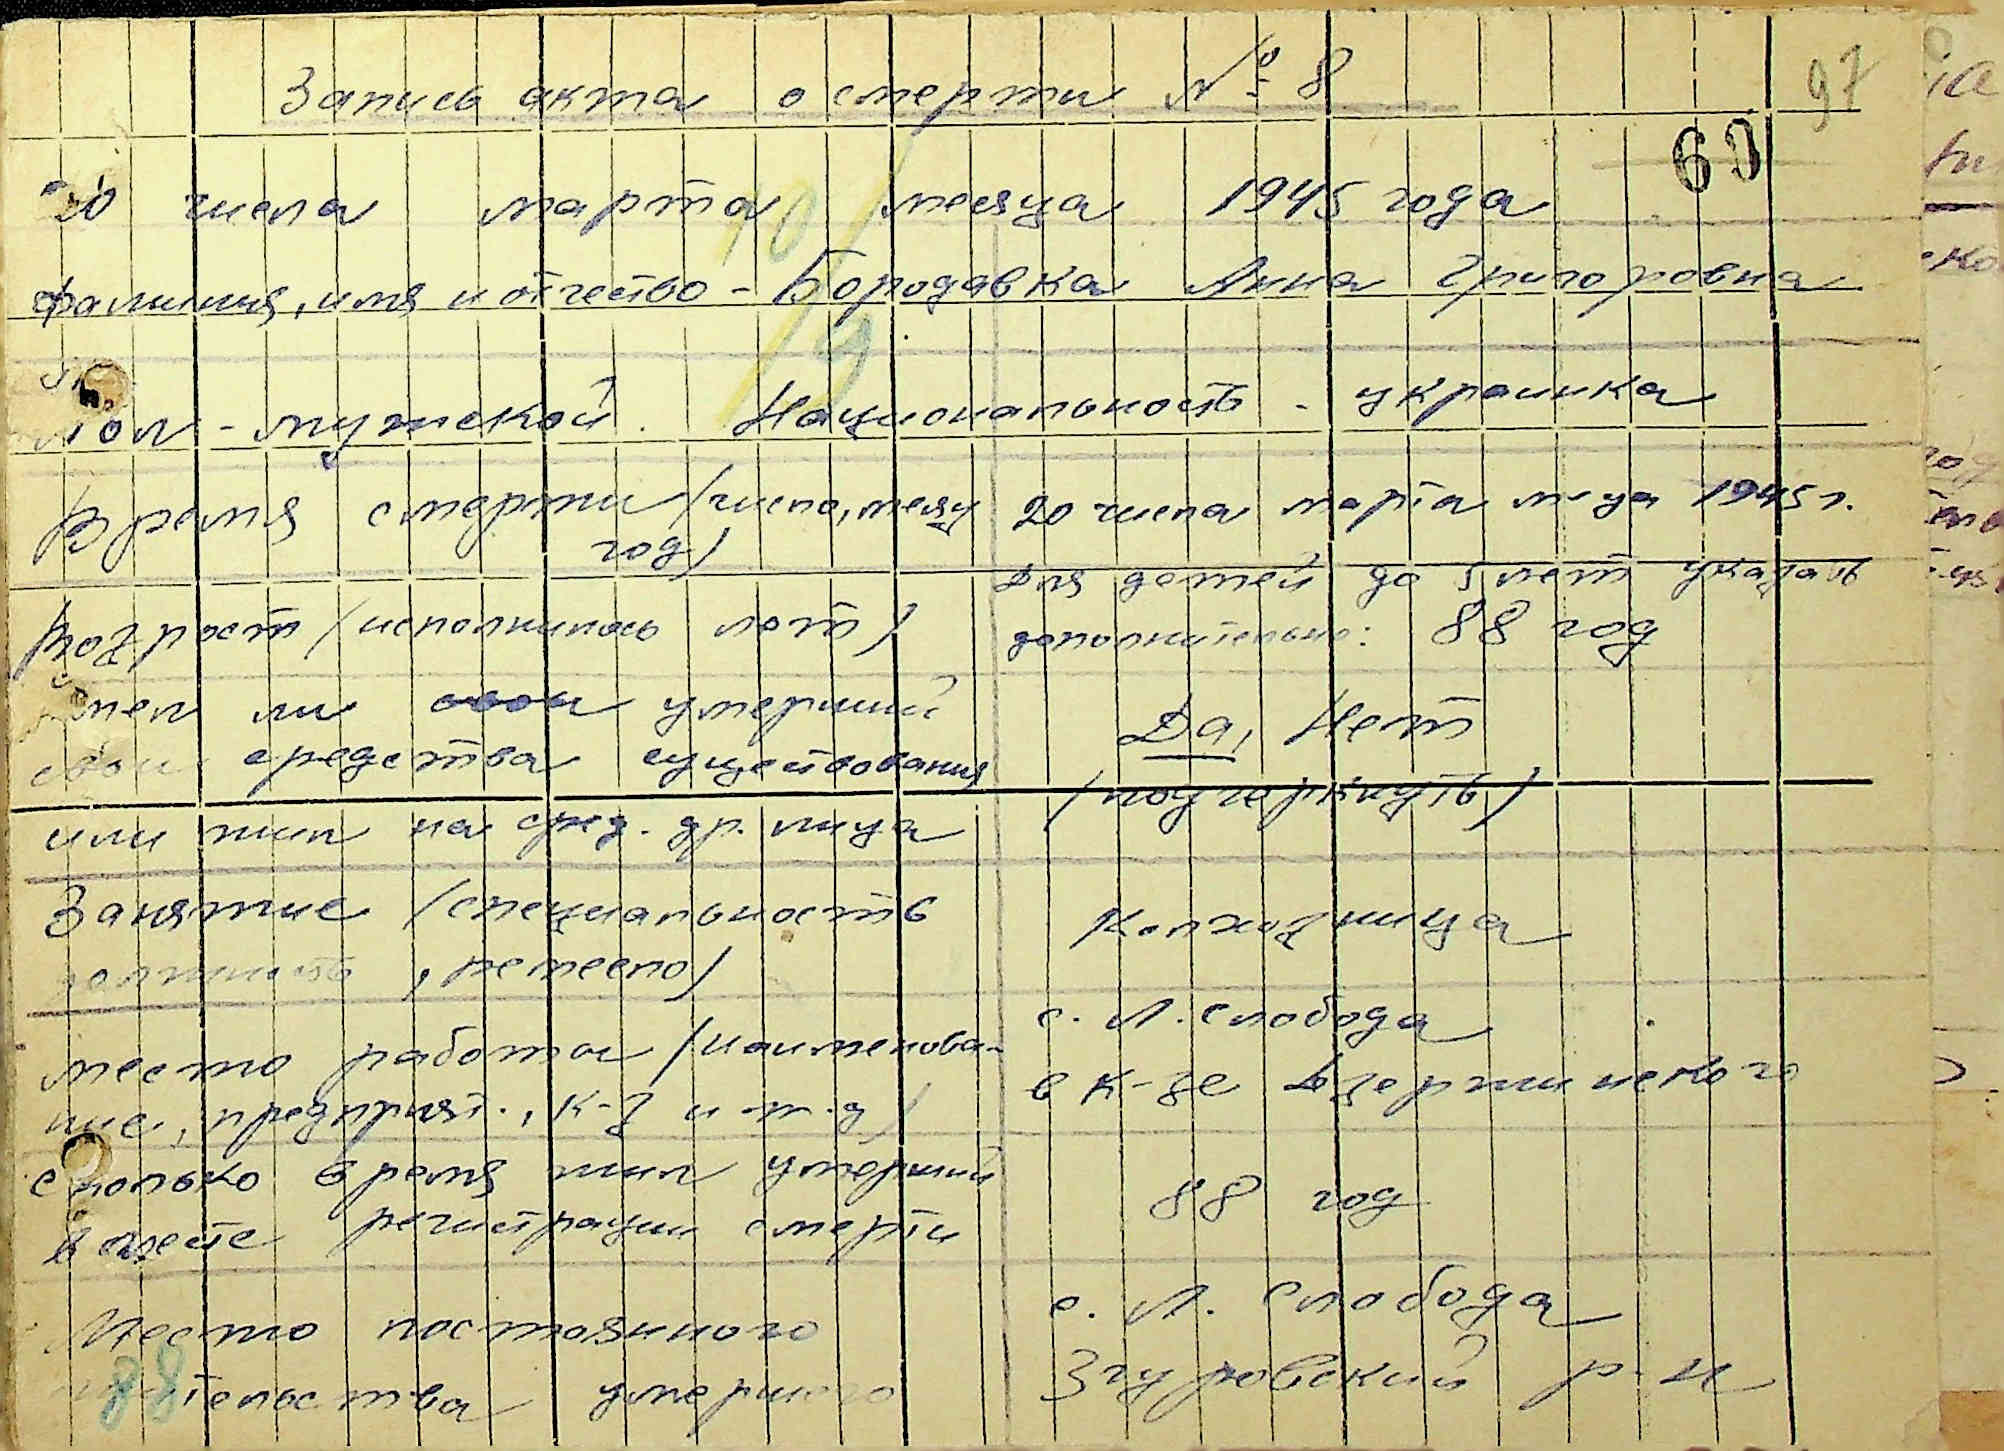 Запись акта о смерти № 8
97
60
20 числа марта месяца 1945 года
10/
фамилия, имя и отчество - Бородавка Анна Григоровна
19
Пол - мужской. Национальность - украинка
Время смерти /число, месяц
год/
20 числа марта м-ца 1945 г.
Возраст /исполнилось лет/
Для детей до 5 лет указать
дополнительно: 88 год
Имел ли умерший
свои средства существования
или жил на сред. др. лица
Да, Нет
/подчеркнуть/
Занятие /специальность
должность, ремесло/
Колхозница
место работы /наименова-
ние, предприят., к-з и т.д/
с. Л. слобода
в к-зе Дзержинского
сколько время жил умерший
в месте регистрации смерти
88 год
Место постоянного
жительства умершего
с. Л. Слобода
Згуровский р-н
88